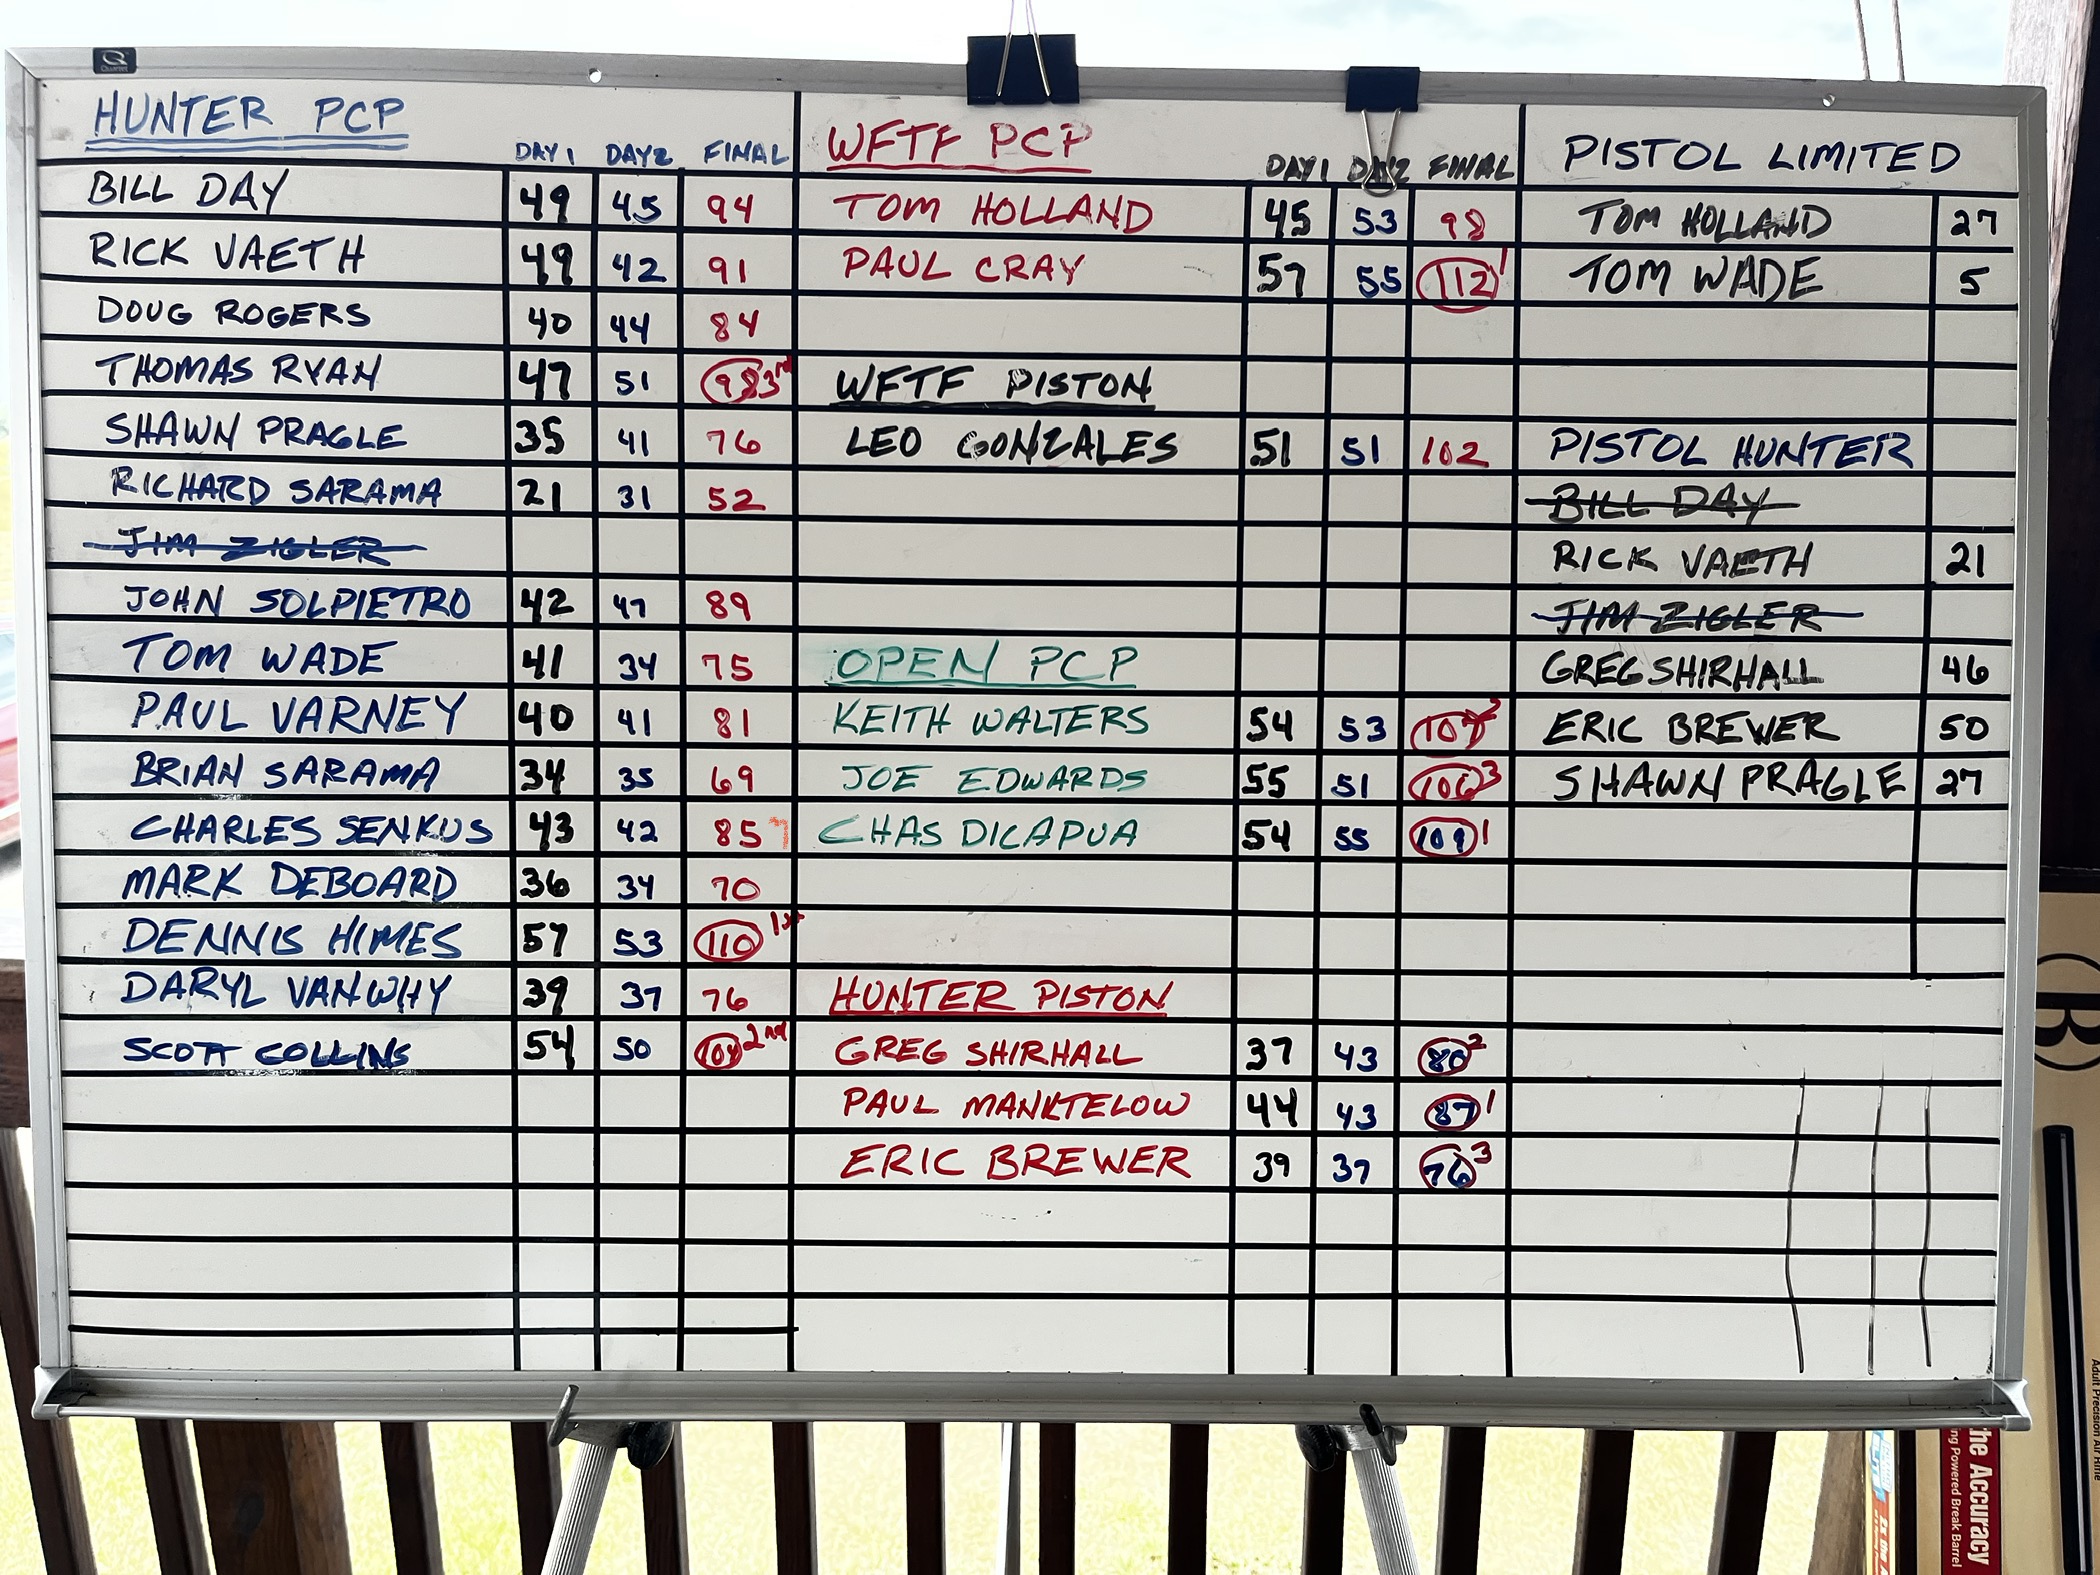 HUNTER PCP DAY 1 DAY 2 FINAL
BILL DAY 49 45 94
RICK VAETH 49 42 91
DOUG ROGERS 40 44 84
THOMAS RYAN 47 51 98 3rd
SHAWN PRAGLE 35 41 76
RICHARD SARAMA 21 31 52
JIM ZIGLER
JOHN SOLPIETRO 42 47 89
TOM WADE 41 34 75
PAUL VARNEY 40 41 81
BRIAN SARAMA 34 35 69
CHARLES SENKUS 43 42 85
MARK DEBOARD 36 34 70
DENNIS HIMES 57 53 110 1st
DARYL VANWHY 39 37 76
SCOTT COLLINS 54 50 104 2nd
WFTF PCP DAY 1 DAY 2 FINAL
TOM HOLLAND 45 53 98
PAUL CRAY 57 55 112 1
WFTF PISTON
LEO GONZALES 51 51 102
OPEN PCP
KEITH WALTERS 54 53 107 2
JOE EDWARDS 55 51 106 3
CHAS DICAPUA 54 55 109 1
HUNTER PISTON
GREG SHIRHALL 37 43 80 2
PAUL MANKTELOW 44 43 87 1
ERIC BREWER 39 37 76 3
PISTOL LIMITED
TOM HOLLAND 27
TOM WADE 5
PISTOL HUNTER
BILL DAY
RICK VAETH 21
JIM ZIGLER
GREG SHIRHALL 46
ERIC BREWER 50
SHAWN PRAGLE 27
the Accuracy
ng Powered Break Barrel
Adult Precision Air Rifle